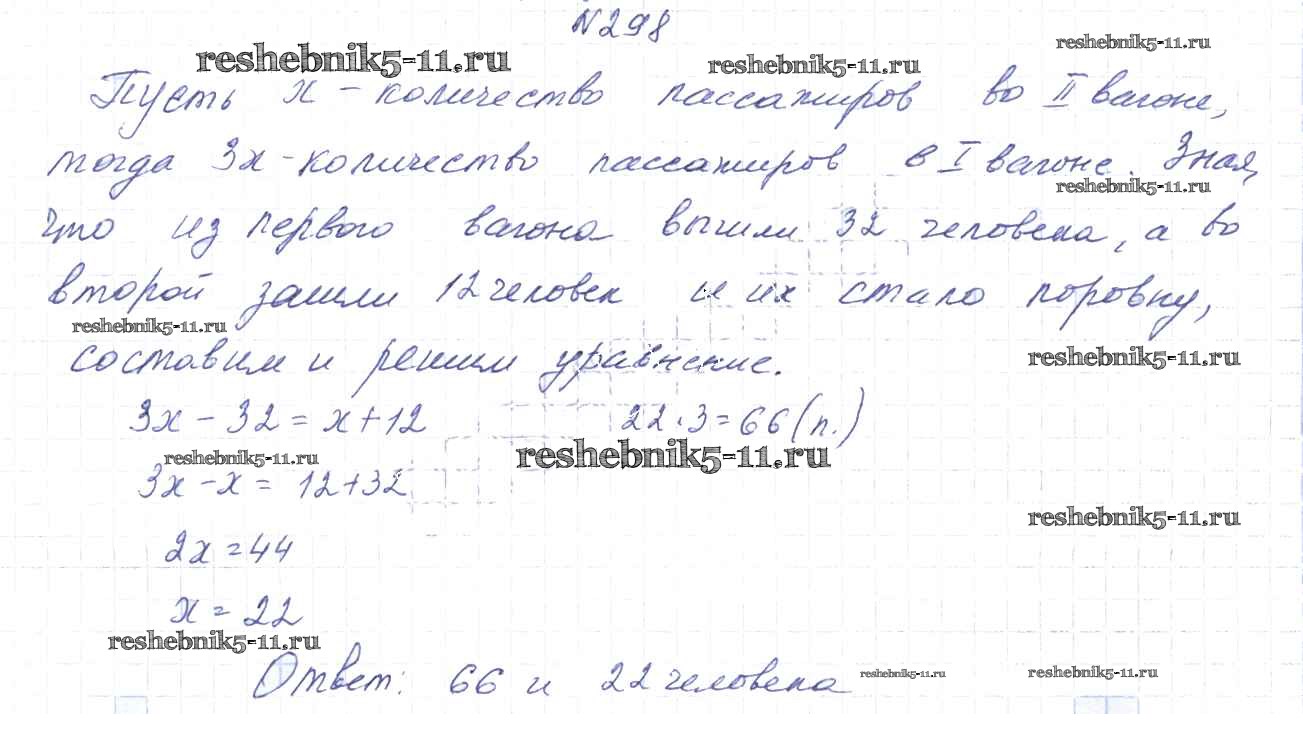 N298
reshebnik5-11.ru
reshebnik5-11.ru
reshebnik5-11.ru
Пусть x - количество пассажиров во II вагоне,
тогда 3x - количество пассажиров в I вагоне. Зная,
reshebnik5-11.ru
что из первого вагона вышли 32 человека, а во
второй зашли 12 человек и их стало поровну,
reshebnik5-11.ru
составим и решим уравнение.
reshebnik5-11.ru
3x - 32 = x + 12 22 · 3 = 66 (п.)
reshebnik5-11.ru
reshebnik5-11.ru
3x - x = 12 + 32
reshebnik5-11.ru
2x = 44
x = 22
reshebnik5-11.ru
Ответ: 66 и 22 человека
reshebnik5-11.ru
reshebnik5-11.ru